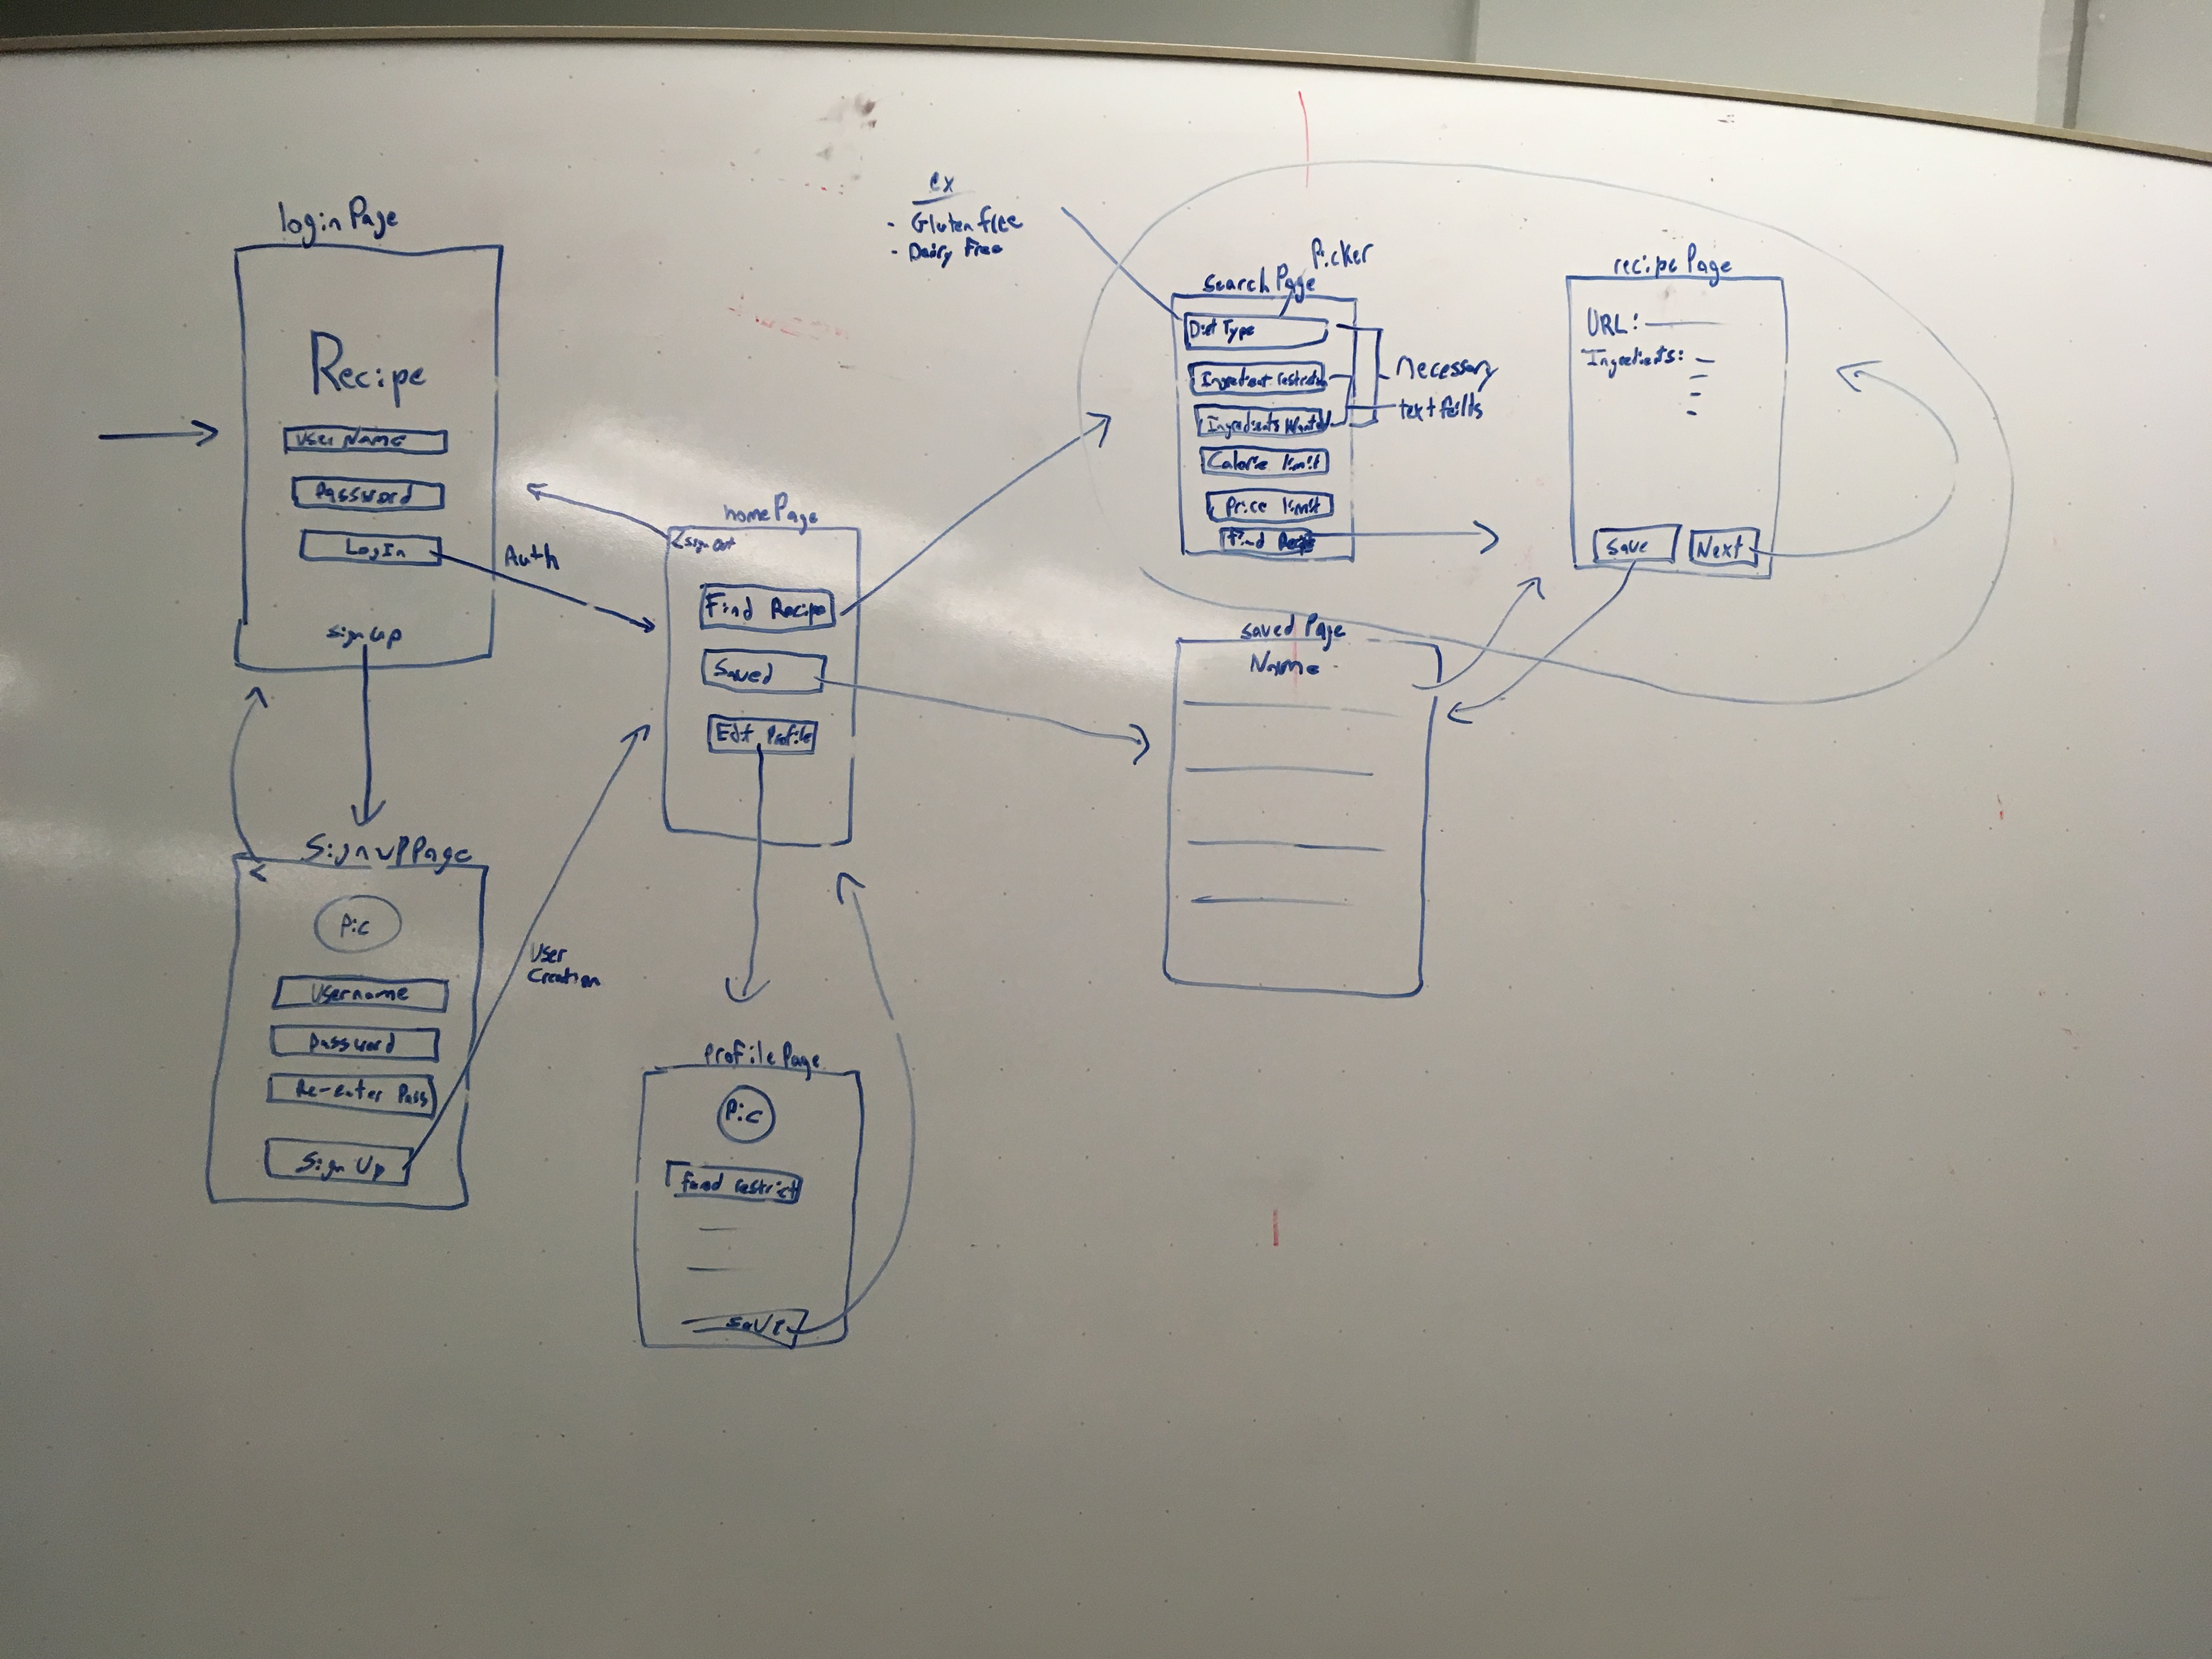 loginPage
Recipe
UserName
Password
LogIn
sign up
Auth
SignupPage
<
Pic
Username
Password
Re-enter Pass
Sign Up
User
Creation
homePage
<sign out
Find Recipe
Saved
Edit Profile
profilePage
Pic
food restrict
save
ex
- Gluten free
- Dairy Free
Picker
searchPage
Diet Type
Ingredient restriction
Ingredients Wanted
Calorie limit
Price limit
Find Recipe
necessary
text
recipePage
URL:
Ingredients:
Save
Next
saved Page
Name